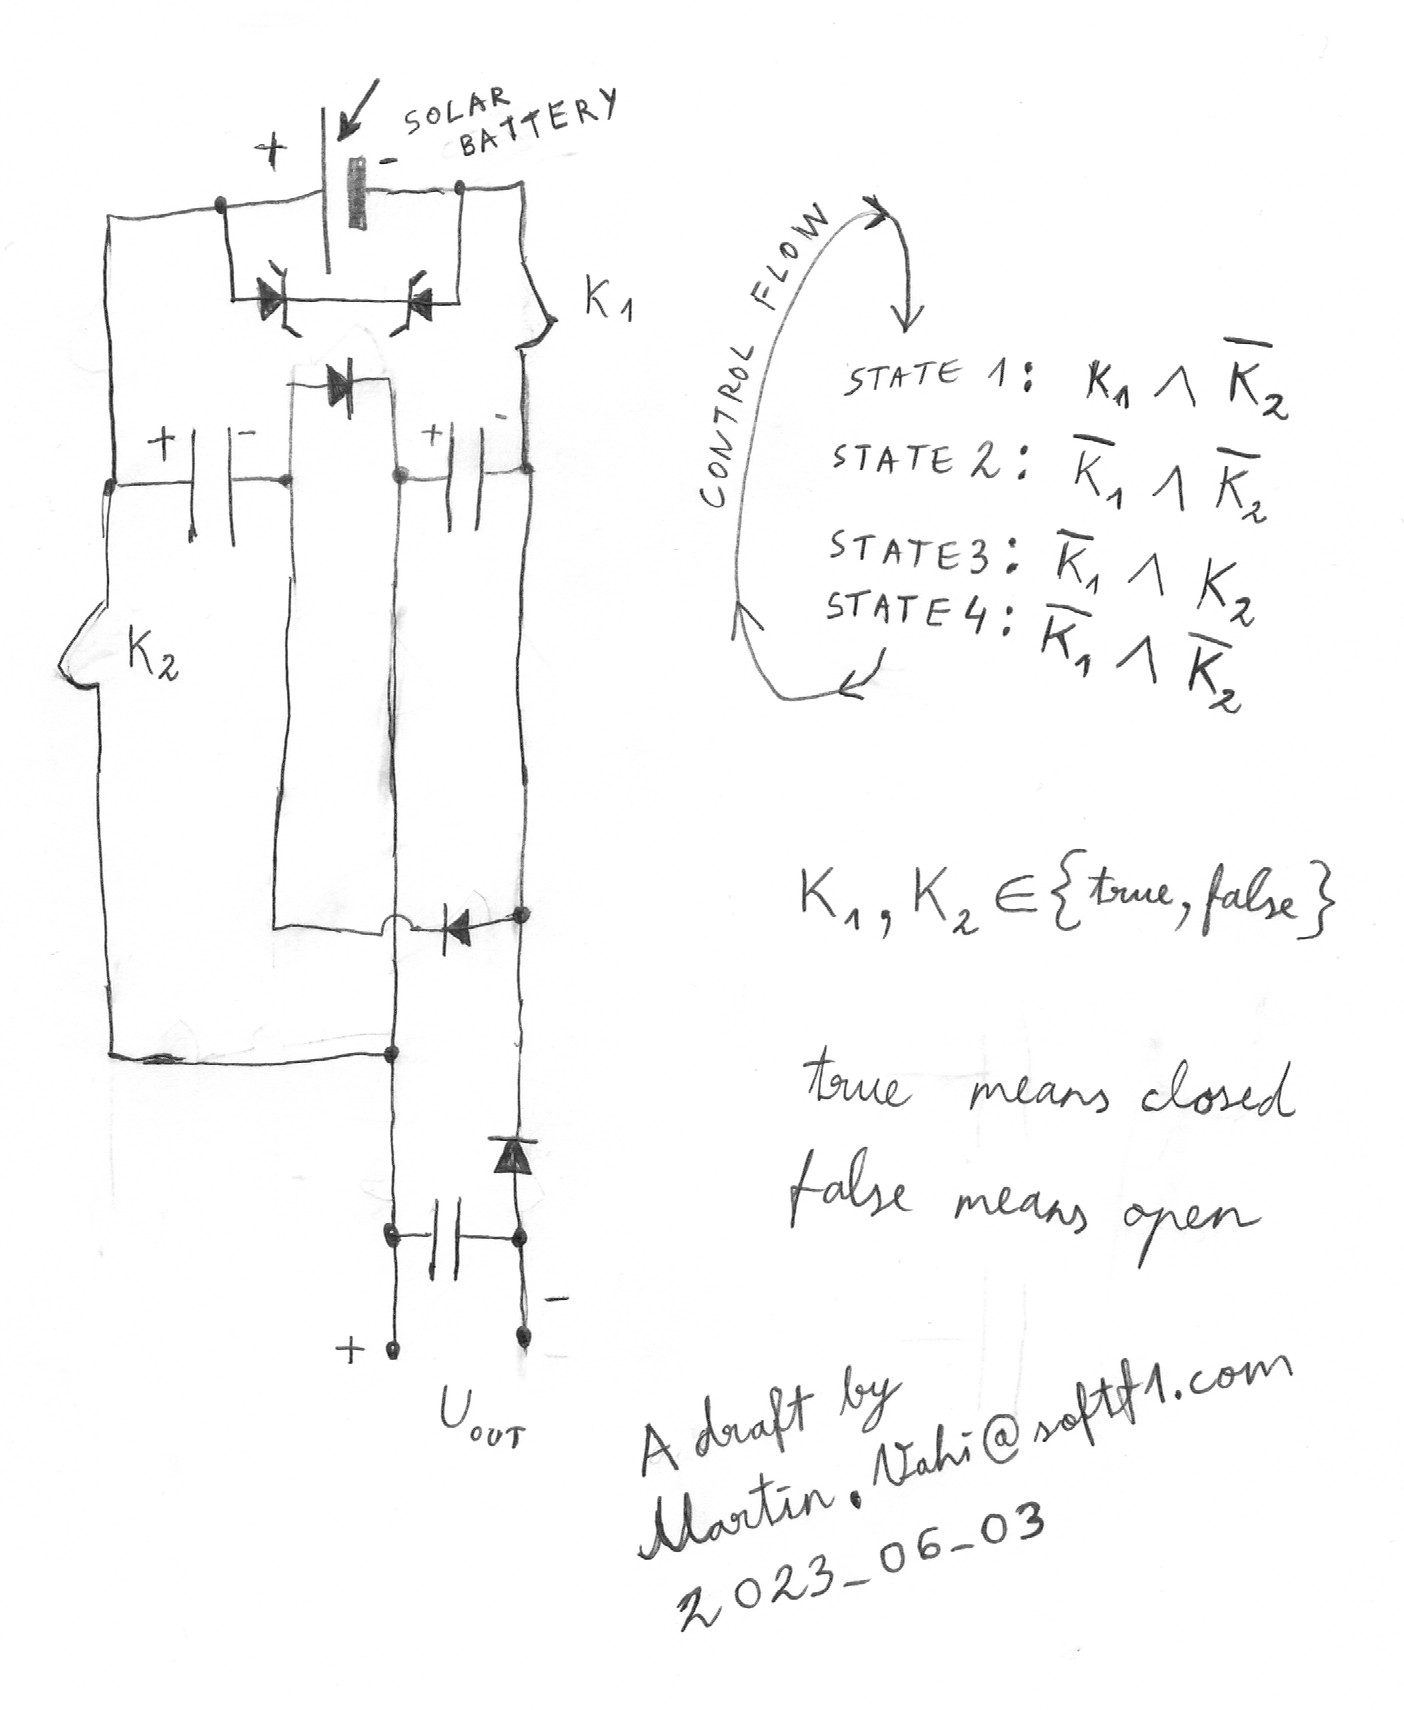 SOLAR
BATTERY
+
-
K1
+
-
+
-
K2
CONTROL FLOW
STATE 1: K1 ∧ K̅2
STATE 2: K̅1 ∧ K̅2
STATE3: K̅1 ∧ K2
STATE4: K̅1 ∧ K̅2
K1, K2 ∈ {true, false}
true means closed
false means open
+
-
UOUT
A draft by
Martin.Vahi@softf1.com
2023_06_03